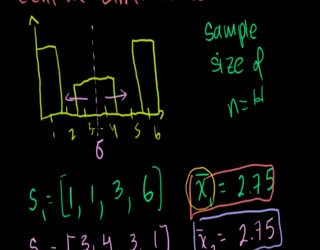 sample
size of
n=4
1 2 3 4 5 6
σ
S₁ = [1, 1, 3, 6]
x̄₁ = 2.75
S₂ = [3, 4, 3, 1]
x̄₂ = 2.75